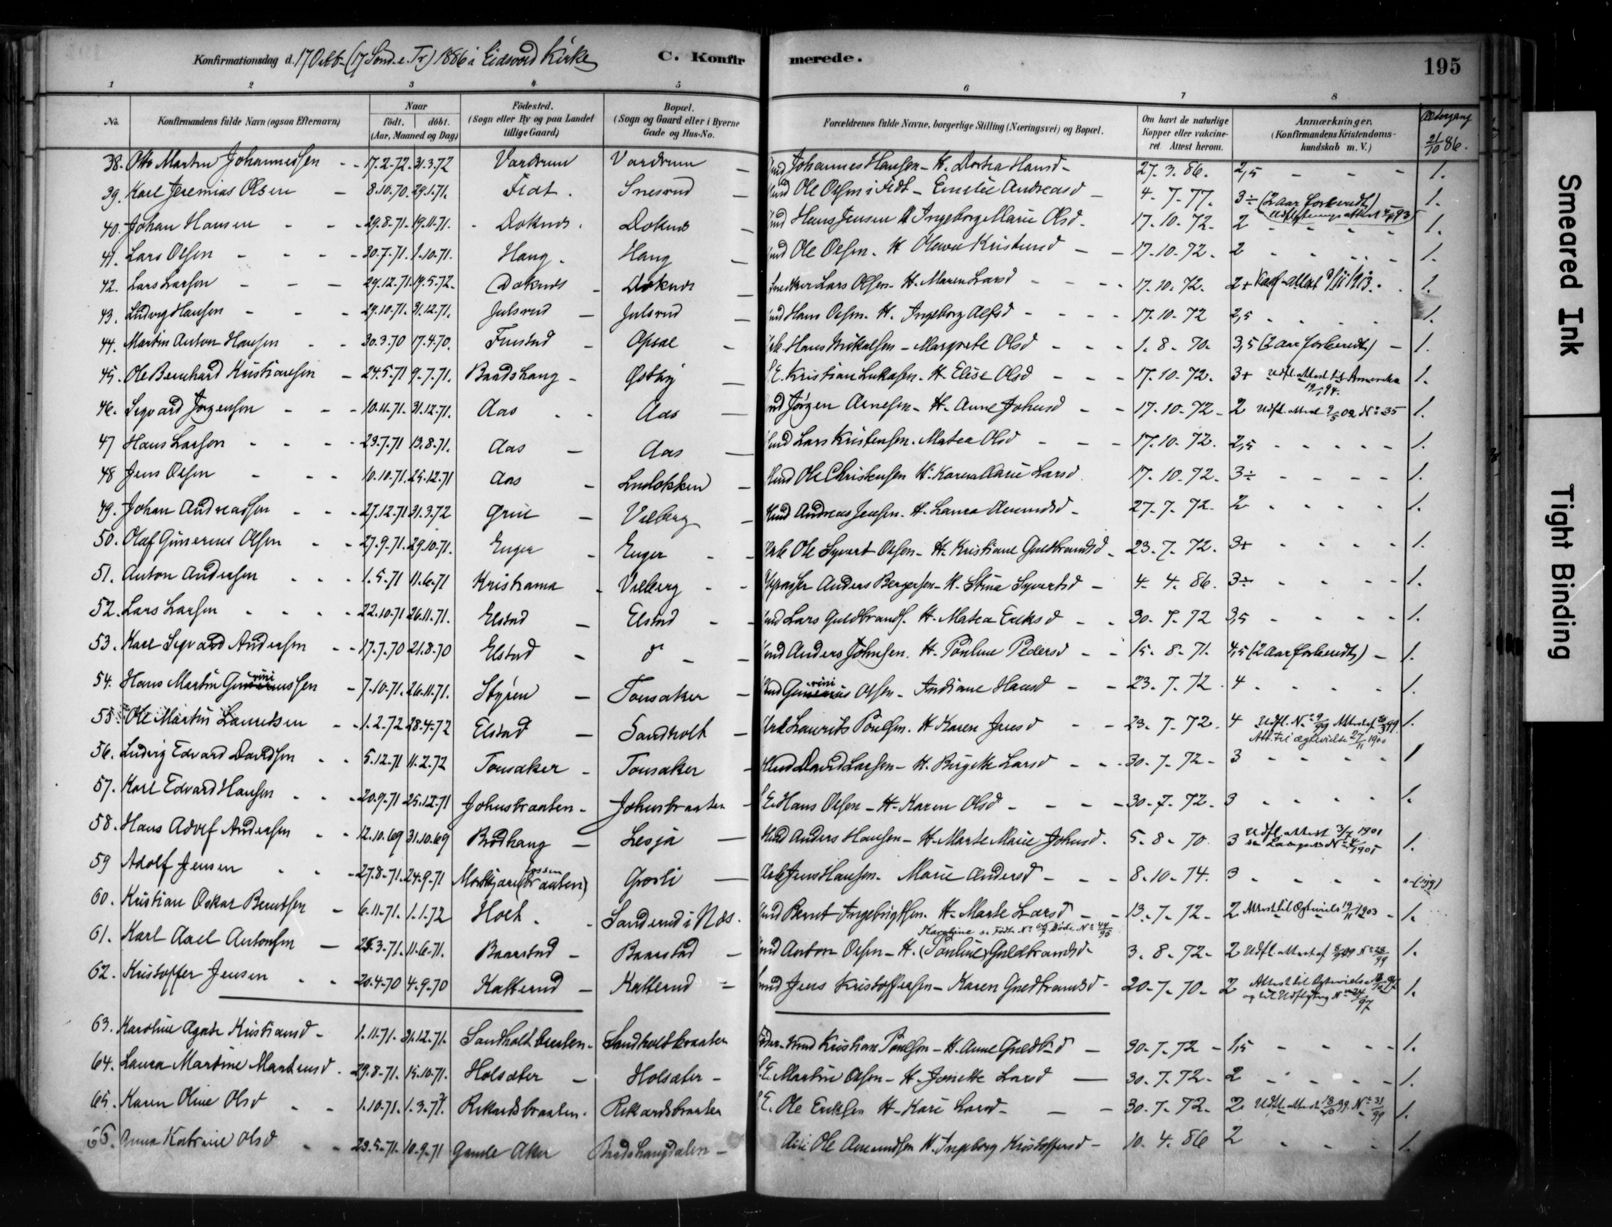 Konfirmationsdag d. 17 Oktb. (17 Sönd. e. Tr) 1886 i Eidsvold Kirke
C. Konfirmerede.
195
1 2 3 4 5 6 7 8
No. Konfirmandens fulde Navn (ogsaa Efternavn) Naar født. døbt. (Aar, Maaned og Dag) Fødested. (Sogn eller By og paa Landet tillige Gaard) Bopæl. (Sogn og Gaard eller i Byerne Gade og Hus-No. Forældrenes fulde Navne, borgerlige Stilling (Næringsvei) og Bopæl. Om havt de naturlige Kopper eller vaccineret. Attest herom. Anmærkninger. (Konfirmandens Kristendomskundskab m. V.) 21/10 86.
38. Otto Martin Johannessen 17.2.72 31.3.72 Vardrum Vardrum Johannes Hansen - H. Dortea Hansd - 27.3.86. 2,5 1.
39. Karl Jeremias Olsen 8.10.70 29.1.71. Fidt Snesrud Ole Olsen i Fidt - Emilie Andreasd 4-7-77. 3÷ (2 Aar forberedt) 1.
40. Johan Hansen 29.8.71. 19.11.71. Doknes Doknes Hans Jensen H Ingeborg Marie Olsd. 17.10-72- 2 1.
41. Lars Olsen 30.7.71. 1.10.71. Hang Hang Ole Olsen. H Olava Kristensd 17.10-72. 2 1.
42. Lars Larsen 29.12.71. 19.5.72. Doknes Doknes Lars Olsen. H. Maren Larsd 17.10-72. 2+ 9/11 1913. 1.
43. Ludvig Hansen 29.10.71. 31.12.71. Julsrud Julsrud Hans Olsen. H. Ingeborg Alfsd 17.10-72 2,5 1.
44. Martin Anton Hansen 30.3.70 17.4.70. Finstad Opsal Hans Mikalsen - Margrete Olsd 1.8-70. 3,5 (2 Aar forberedt) 1.
45. Ole Bernhard Kristiansen 24.5.71 9.7.71. Baadshang Østby Kristian Lukasen. H Elise Olsd 17.10.72. 3+ Udfl. Attest til Amerika 1.
46. Sigvard Jørgensen 10.11.71. 31.12.71. Aas Aas Jørgen Arnesen - H. Anne Johnsd 17.10-72- 2 Udfl. Attest 9/5 02 No 35 1.
47 Hans Larsen 23.7.71 13.8.71. Aas Aas Lars Kristensen. Matea Olsd 17.10.72. 2,5 1.
48 Jens Olsen 10.10.71. 25.12.71 Aas Lundløkken Ole Christensen H. Karen Marie Larsd. 17.10.72. 3÷ 1.
49. Johan Andreassen 27.12.71 31.3.72 Grin Vilberg Andreas Jensen. H. Laura Amundsd 27.7.72. 2 1.
50. Olaf Gunerius Olsen 27.9.71. 29.10.71. Enger Enger Ole Syvert Olsen - H. Kristiane Guldbrandsd. 23.7.72. 3+ 1.
51. Anton Andersen 1.5.71 11.6.71 Kristiania Vilberg Anders Borgersen - H. Stina Syvertsd 4-4-86. 3÷ 1.
52. Lars Larsen 22.10.71 26.11.71. Elstad Elstad Lars Guldbrands. H- Matea Eriksd 30-7-72 3,5 1.
53. Karl Sigvard Andersen 17.7.70 21.8.70 Elstad do Anders Johnsen. H. Pauline Pedersd 15-8-71. 4,5 (2 Aar forberedt) 1.
54. Hans Martin Gunerinissen 7.10.71. 26.11.71. Styren Tonsaker Olsen - Indiane Hansd 23.7.72. 4 1.
55. Ole Martin Lauritsen 1.2.72 28.4.72 Elstad Sandholt Laurits Poulsen. H Karen Jensd 23-7-72. 4 1.
56. Ludvig Edvard Davidsen 5.12.71 11.2.72 Tonsaker Tonsaker David Larsen - H. Birgitte Larsd 30-7-72- 3 1
57. Karl Edvard Hansen 20.9.71 25.12.71 Johnsbraaten Johnsbraaten Hans Olsen - H. Karen Olsd 30-7-72- 3 1.
58. Hans Adolf Andersen 12.10.69 31.10.69 Brodhang Lesja Anders Hansen - H. Marte Marie Johnsd. 5-8-70. 3 1.
59 Adolf Jensen 27.8.71. 24.9.71 Grøsli Jens Hansen. Marie Andersd 8-10-74. 3
60. Kristian Oskar Berntsen 6.11.71. 1.1.72 Holt Sanderud i Næs. Bernt Ingebrigtsen. H. Marte Larsd 13.7.72- 2 1.
61. Karl Axel Antonsen 23.3.71. 11.6.71. Baarstad Baarstad Anton Olsen - H. (Pauline) Guldbrandsd 3.8.72- 2 1.
62. Kristoffer Jensen 20.4.70 4.9.70 Katterud Katterud Jens Kristoffersen - Karen Guldbrandsd 20-7-70- 2 1.
63. Karoline Agate Kristiansd 1.11.71. 31.12.71. Sandholtbraaten Sandholtbraaten Kristian Poulsen - H. Anne 30-7-72 - 1,5 1.
64. Laura Martine Martinsd. 29.8.71. 15.10.71. Holsæter Holsæter Martin Olsen - H. Jonette Larsd 30.7.72- 2 1.
65. Karen Oline Olsd 1.10.71. Rikardsbraaten Rikardsbraaten Ole Eriksen H- Kari Larsd 30-7-72- 2 1.
66. Anna Katrine Olsd 23.5.71. 10.9.71 Gamle Aker Baadshangdalen Ole Amundsen H. Ingeborg Kristoffersd 10.4.86 2 1.
Smeared Ink
Tight Binding